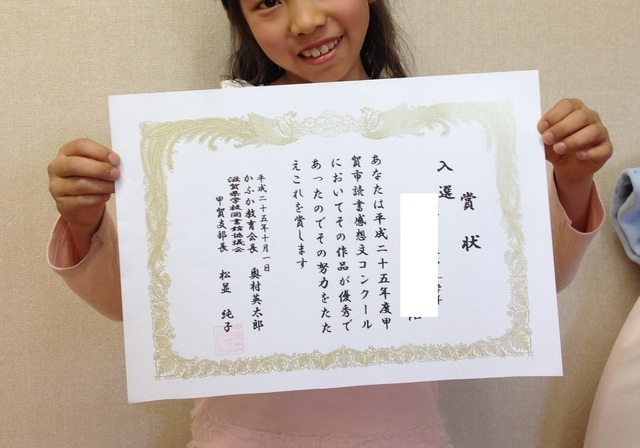 賞状
入選
あなたは平成二十五年度甲
賀市読書感想文コンクール
においてその作品が優秀で
あったのでその努力をたた
えこれを賞します
平成二十五年十月一日
かふか教育会長 奥村英太郎
滋賀県学校図書館協議会
甲賀支部長 松並純子